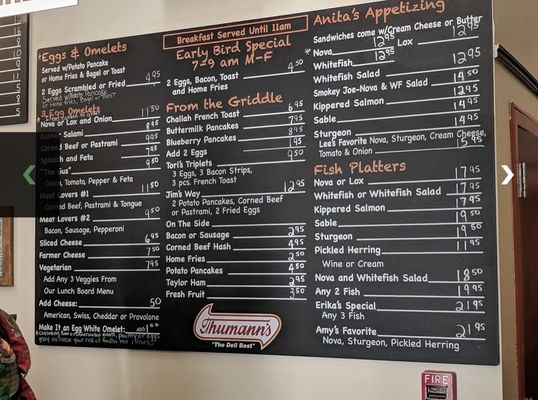 Eggs & Omelets
Served w/Potato Pancake
or Home Fries & Bagel or Toast
2 Eggs Scrambled or Fried 4.95
Served w/Potato Pancake
or Home Fries, Bagel or Toast
3 Egg Omelets
Nova or Lox and Onion 11.50
Kosher Salami 8.95
Corned Beef or Pastrami 9.50
Spinach and Feta 7.95
"The Gus" 9.50
Onion, Tomato, Pepper & Feta
Meat Lovers #1 11.50
Corned Beef, Pastrami & Tongue
Meat Lovers #2 9.50
Bacon, Sausage, Pepperoni
Sliced Cheese 6.95
Farmer Cheese 7.50
Vegetarian 7.95
Add Any 3 Veggies From
Our Lunch Board Menu
Add Cheese: .50
American, Swiss, Cheddar or Provolone
Make It an Egg White Omelet: ADD $1.00
Breakfast Served Until 11am
Early Bird Special
7-9 am M-F
2 Eggs, Bacon, Toast 4.50
and Home Fries
From the Griddle
Challah French Toast 6.95
Buttermilk Pancakes 7.95
Blueberry Pancakes 8.95
Add 2 Eggs 1.95
Tori's Triplets 9.50
3 Eggs, 3 Bacon Strips,
3 pcs. French Toast
Jim's Way 12.95
2 Potato Pancakes, Corned Beef
or Pastrami, 2 Fried Eggs
On The Side
Bacon or Sausage 2.95
Corned Beef Hash 4.95
Home Fries 2.50
Potato Pancakes 4.50
Taylor Ham 2.95
Fresh Fruit 3.50
Thumann's
"The Deli Best"
Anita's Appetizing
Sandwiches come w/Cream Cheese or Butter
Nova 12.95 Lox 12.95
Whitefish 12.95
Whitefish Salad 12.95
Smokey Joe-Nova & WF Salad 14.50
Kippered Salmon 12.95
Sable 14.95
Sturgeon 14.95
Lee's Favorite Nova, Sturgeon, Cream Cheese,
Tomato & Onion 15.95
Fish Platters
Nova or Lox 17.95
Whitefish or Whitefish Salad 17.95
Kippered Salmon 17.95
Sable 19.50
Sturgeon 19.50
Pickled Herring 11.95
Wine or Cream
Nova and Whitefish Salad 18.50
Any 2 Fish 19.95
Erika's Special 21.95
Any 3 Fish
Amy's Favorite 21.95
Nova, Sturgeon, Pickled Herring
FIRE